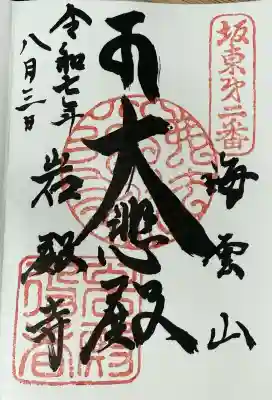 坂東第二番
海雲山
大悲殿
令和七年
八月三日
岩殿寺